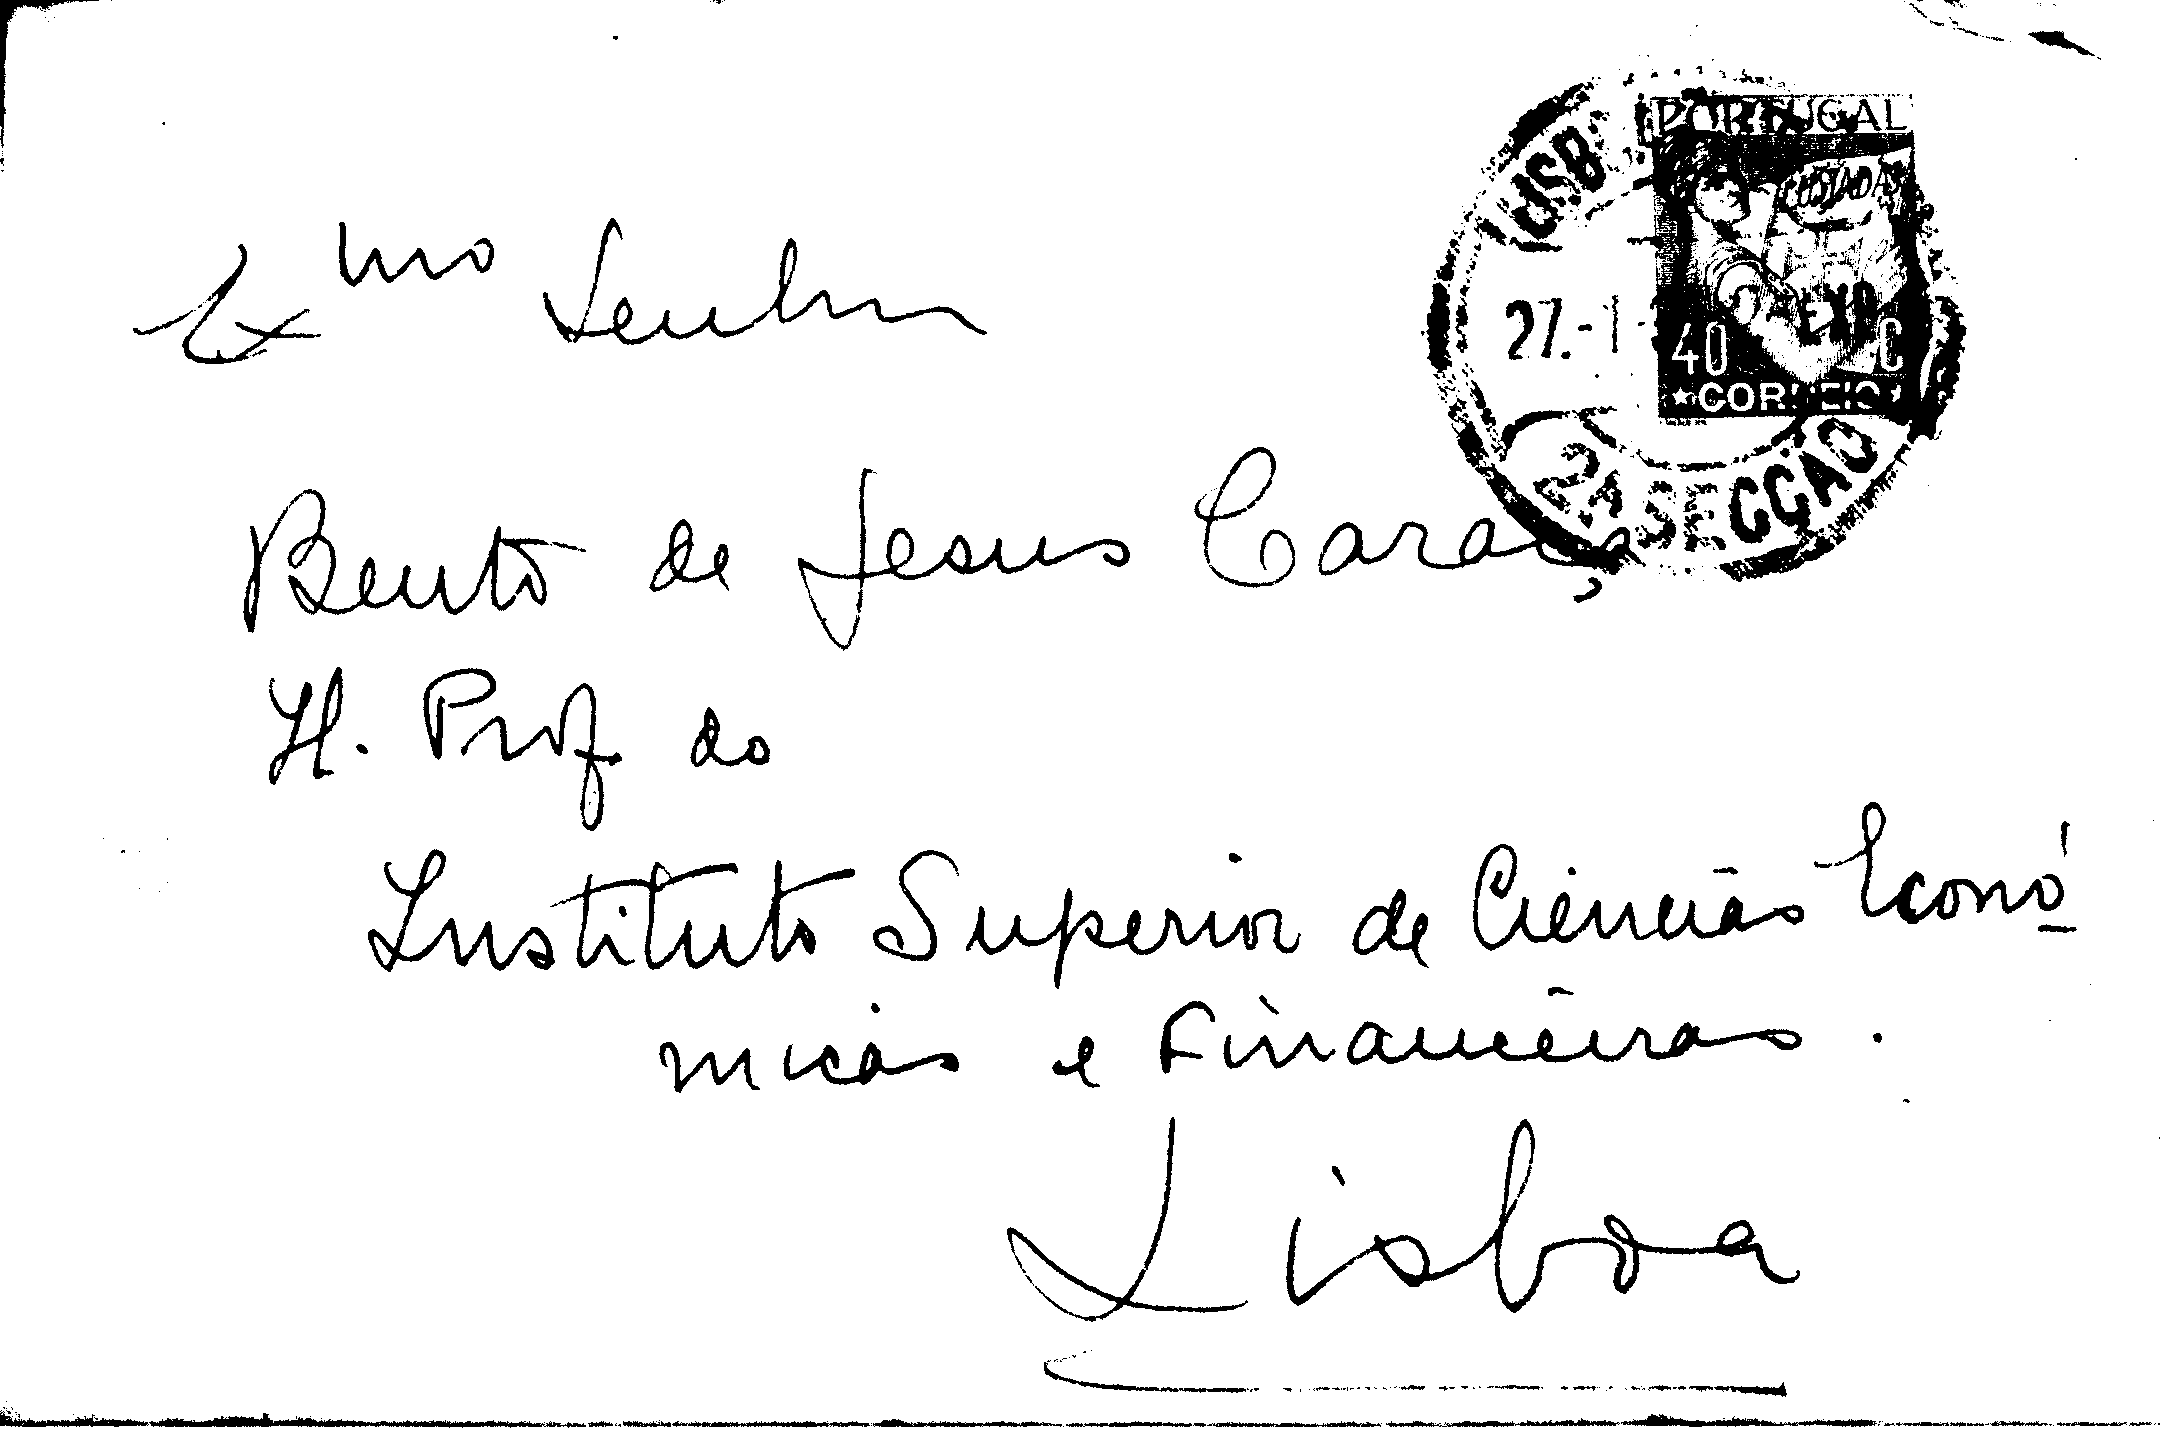 PORTUGAL
LUSIADAS
LISB
27.-1
40 C
CORREIO
2A SECÇÃO
Exmo Senhor
Bento de Jesus Caraça
H. Prof. do
Instituto Superior de Ciências Econó-
micas e Financeiras.
Lisboa